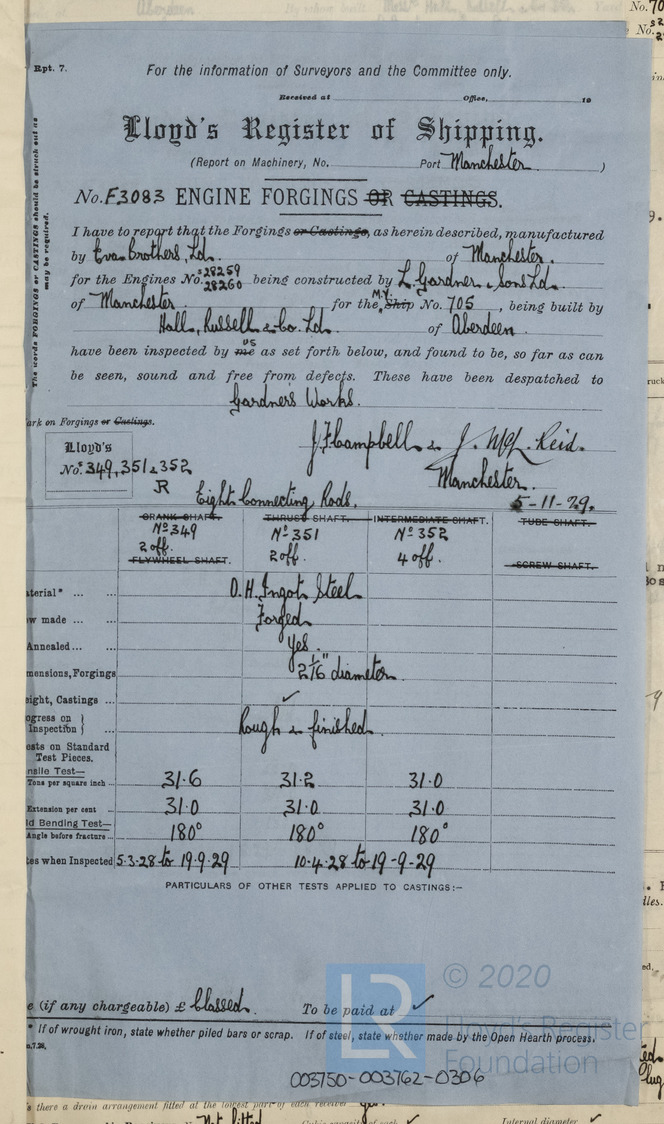 Rpt. 7.
For the information of Surveyors and the Committee only.
Received at Office, 19
Lloyd's Register of Shipping.
(Report on Machinery, No. Port Manchester )
No. F3083 ENGINE FORGINGS OR CASTINGS.
The words FORGINGS or CASTINGS should be struck out as
may be required.
I have to report that the Forgings or Castings, as herein described, manufactured
by Evans Brothers, Ld. of Manchester.
for the Engines No. 28259
28260 being constructed by L. Gardner & Sons Ld.
of Manchester for the M.Y. Ship No. 705, being built by
Hall, Russell & Co. Ld. of Aberdeen
have been inspected by me us as set forth below, and found to be, so far as can
be seen, sound and free from defects. These have been despatched to
Gardner's Works.
ark on Forgings or Castings.
Lloyd's
Nos. 349, 351 & 352
JR
J F Campbell & J. McL. Reid.
Manchester.
Eight Connecting Rods.
5-11-29.
CRANK SHAFT. THRUST SHAFT. INTERMEDIATE SHAFT. TUBE SHAFT.
No 349 No 351 No 352
2 off. 2 off. 4 off.
FLYWHEEL SHAFT. SCREW SHAFT.
aterial* ... ... O.H. Ingot Steel
ow made ... ... Forged
Annealed ... ... Yes.
mensions, Forgings 2 1/16" diameter.
eight, Castings ... ✓
ogress on
Inspection } ... Rough & finished.
ests on Standard
Test Pieces.
nsile Test—
Tons per square inch ... 31.6 31.2 31.0
Extension per cent 31.0 31.0 31.0
ld Bending Test—
Angle before fracture ... 180° 180° 180°
tes when Inspected 5.3.28 to 19.9.29 10.4.28 to 19-9-29
PARTICULARS OF OTHER TESTS APPLIED TO CASTINGS:—
e (if any chargeable) £ Classed. To be paid at ✓
* If of wrought iron, state whether piled bars or scrap. If of steel, state whether made by the Open Hearth process.
LR
© 2020
Lloyd's Register
Foundation
003750-003762-0306
s there a drain arrangement fitted at the lowest part of each receiver Yes.
Not fitted
Internal diameter ✓